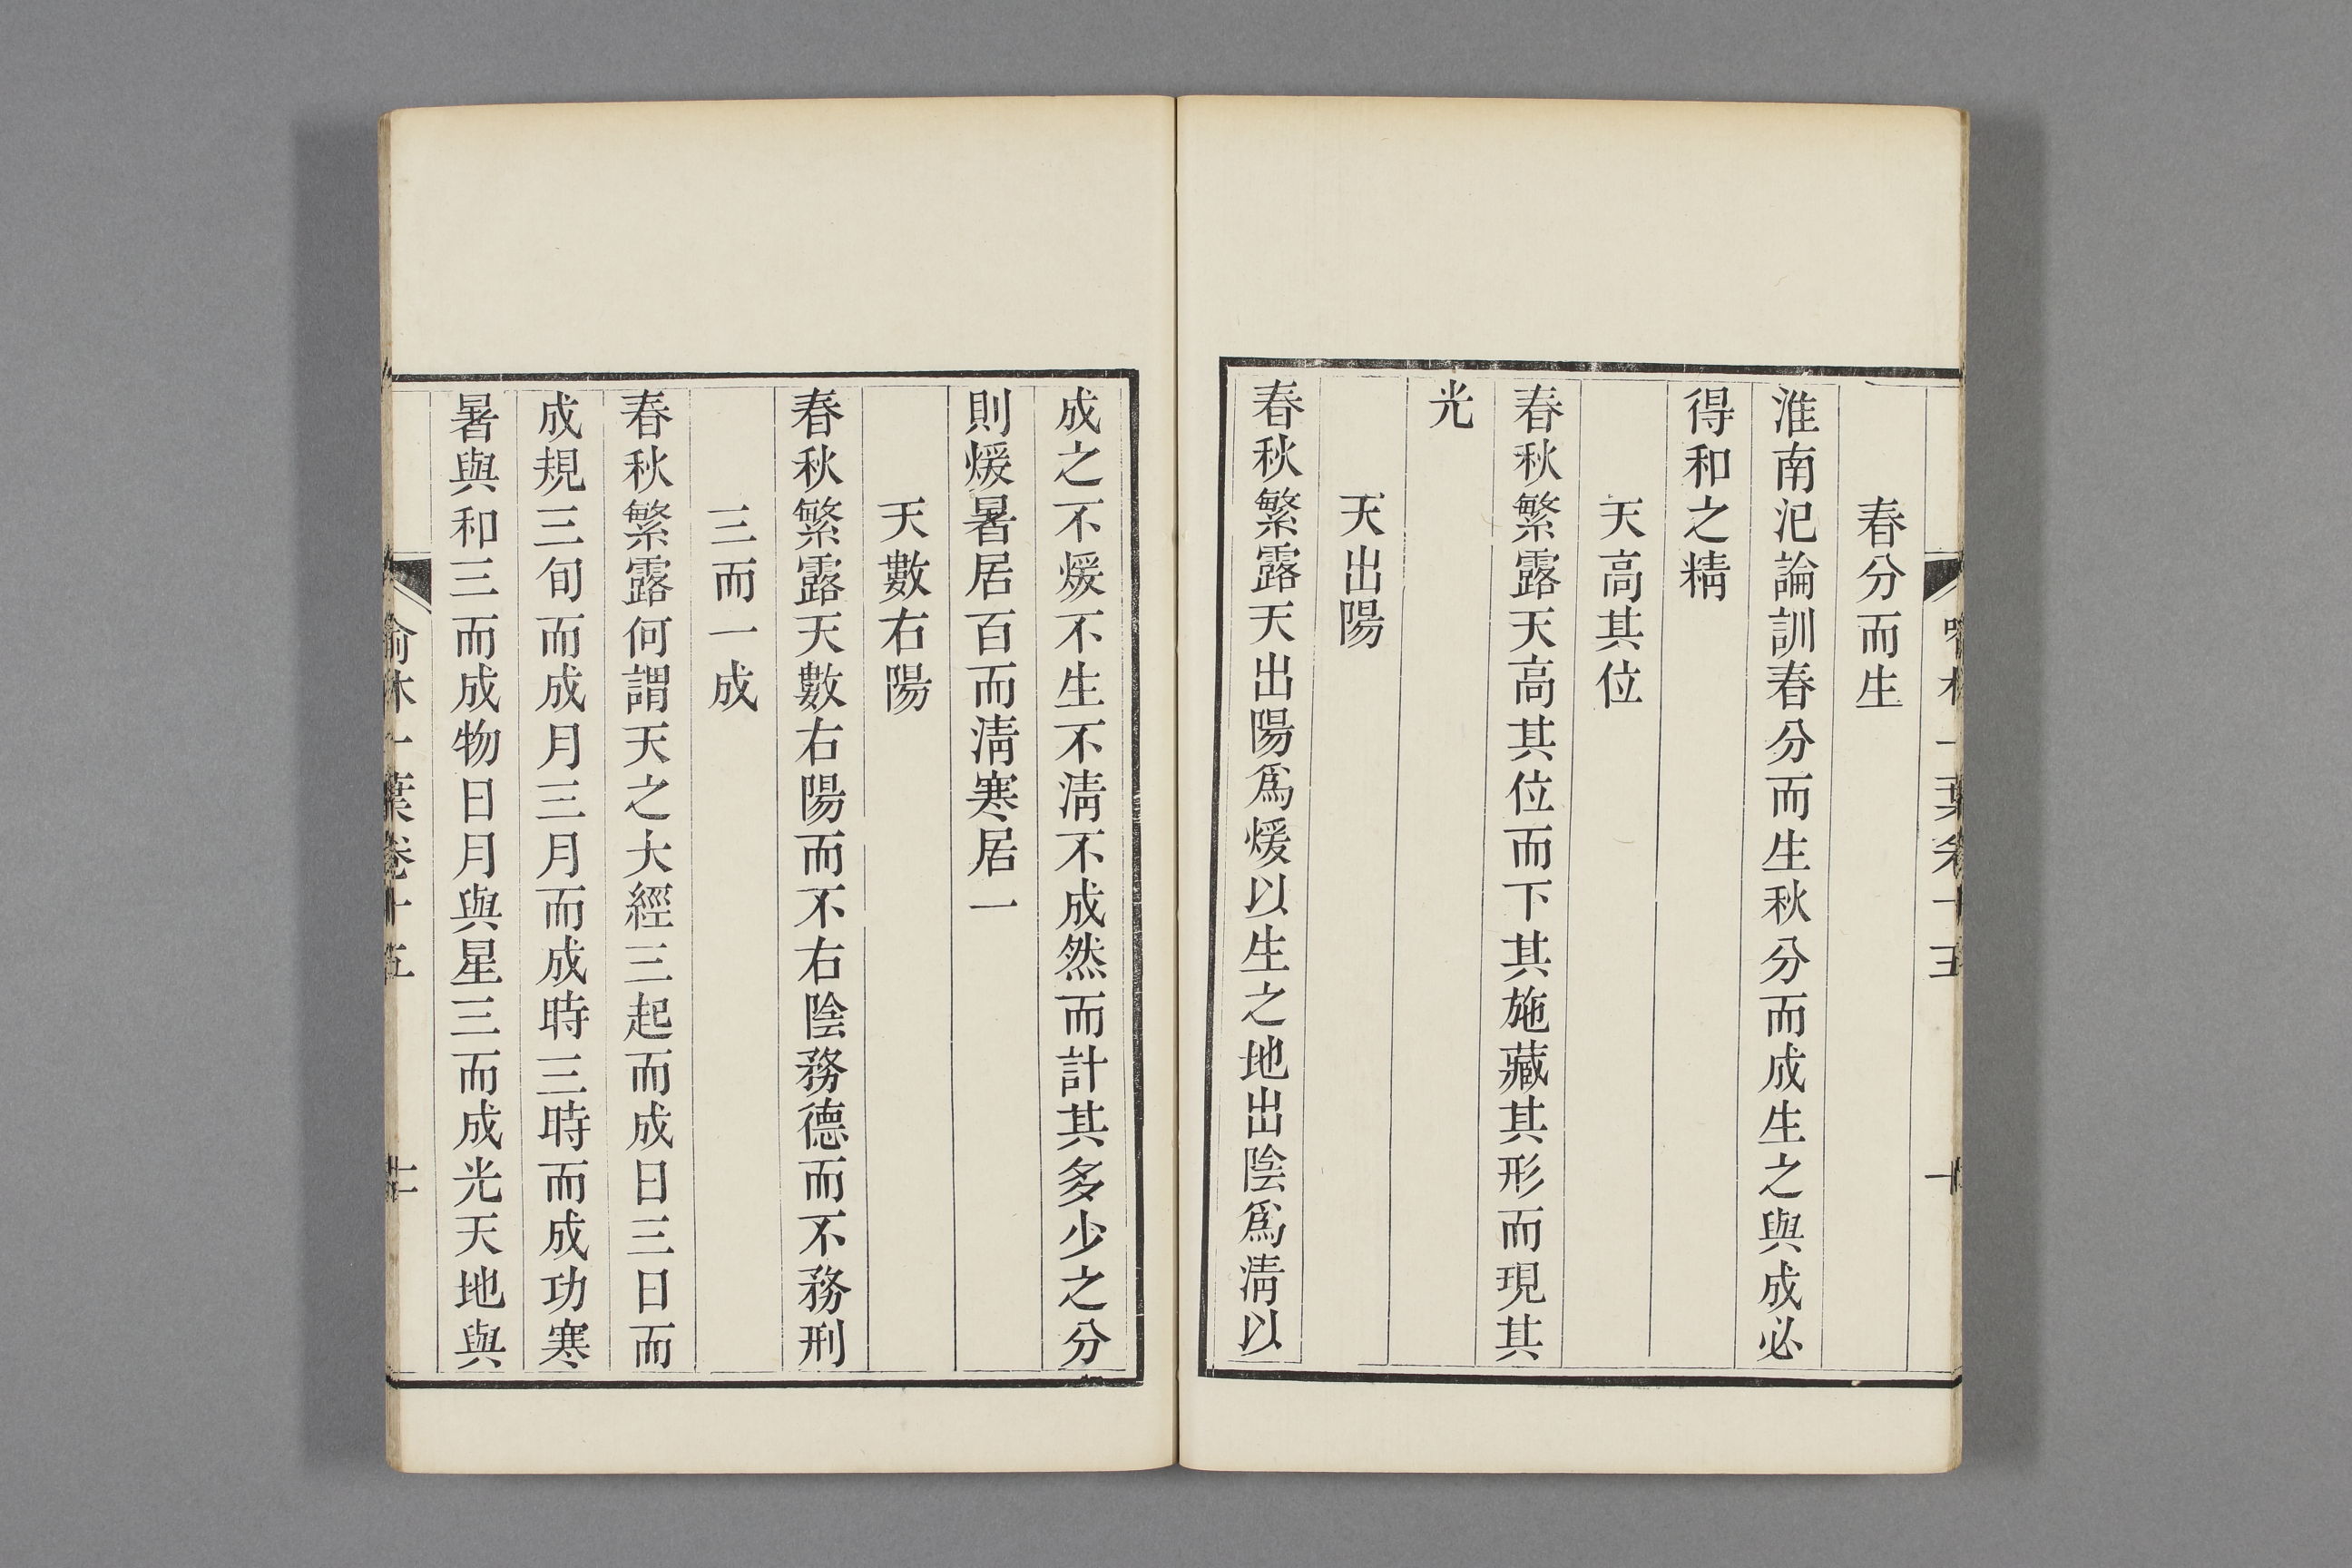 春分而生
淮南氾論訓春分而生秋分而成生之與成必
得和之精
天高其位
春秋繁露天高其位而下其施藏其形而現其
光
天出陽
春秋繁露天出陽爲煖以生之地出陰爲淸以
成之不煖不生不淸不成然而計其多少之分
則煖暑居百而淸寒居一
天數右陽
春秋繁露天數右陽而不右陰務德而不務刑
三而一成
春秋繁露何謂天之大經三起而成日三日而
成規三旬而成月三月而成時三時而成功寒
暑與和三而成物日月與星三而成光天地與
一葉卷十五